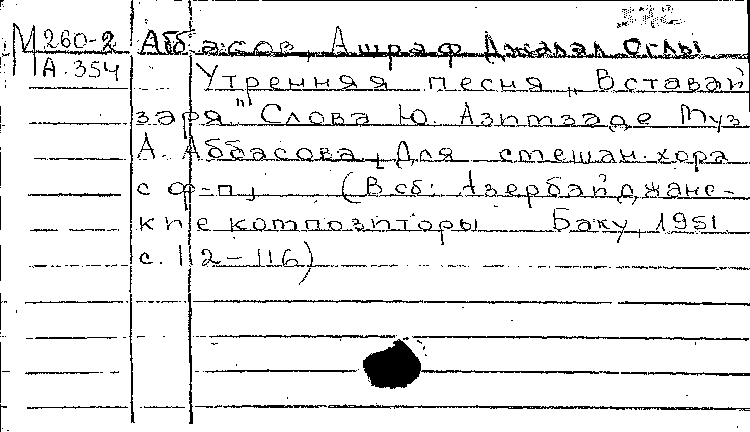 М260-2 Аббасов, Ашраф Джалал Оглы
А.354 Утренняя песня „Вставай
заря" Слова Ю. Азимзаде Муз
А. Аббасова, Для смешан. хора
с ф-п] (В сб: Азербайджанс-
кие композиторы Баку, 1951
с. 112-116)